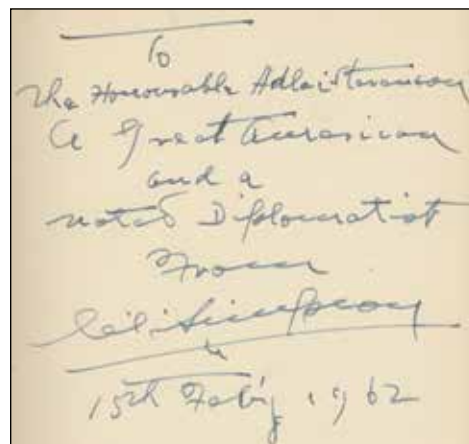 To
The Honourable Adlai Stevenson
A Great American
and a
noted Diplomatist
From
Simpson
15th Feb'y 1962